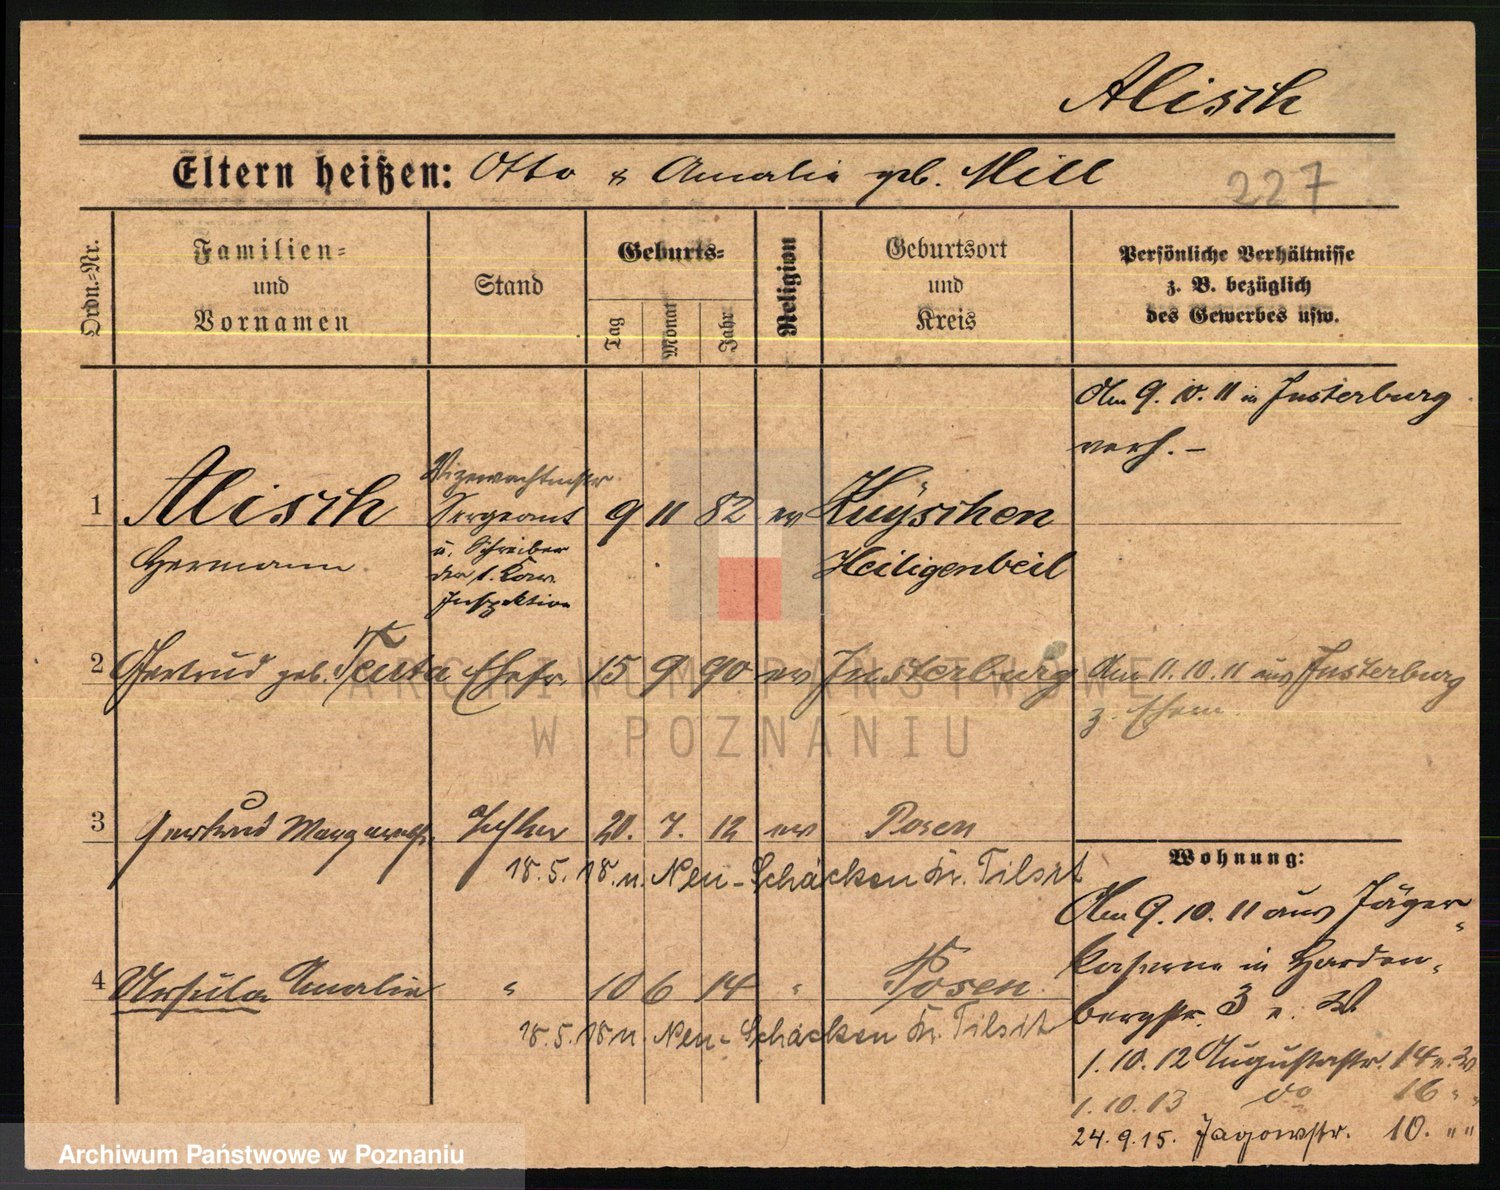 Alisch
Eltern heißen: Otto & Amalie geb. Mill
227
Ordn.-Nr.
Familien-
und
Vornamen
Stand
Geburts-
Tag
Monat
Jahr
Religion
Geburtsort
und
Kreis
Persönliche Verhältnisse
z. B. bezüglich
des Gewerbes usw.
Am 9. 10. 11 in Insterburg
verh. –
Vizewachtmstr.
1 Alisch Sergeant 9 11 82 ev
Hermann
u. Schreiber
der 1. Kav.
Inspektion
Heiligenbeil
2 Gertrud geb. Ehefr. 15 9 90 ev Insterburg Am 11. 10. 11 aus Insterburg
z. Ehem.
3 Gertrud Margareth. Tochter 20. 7. 12 ev Posen
18. 5. 18. n. Neu-Schäcken Kr. Tilsit
4 Ursula Amalie " 10 6 14 " Posen.
18. 5. 18 n. Neu-Schäcken Kr. Tilsit
Wohnung:
Am 9. 10. 11 aus Jäger-
kaserne in Harden-
bergstr. 3 e. W
1. 10. 12 Augustastr. 14 e. W
1. 10. 13 do 16 " "
24. 9. 15. Jagowstr. 10. " "
ARCHIWUM PAŃSTWOWE
W POZNANIU
Archiwum Państwowe w Poznaniu